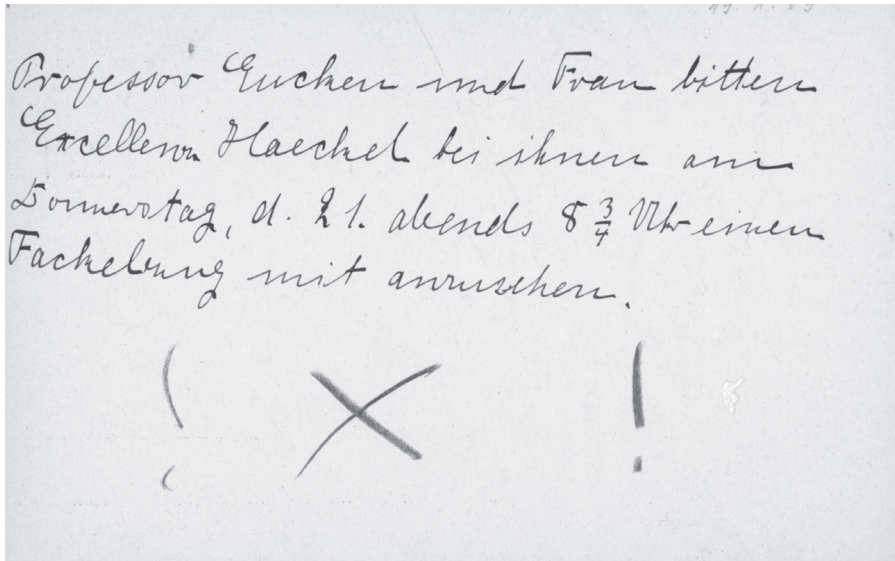 Professor Eucken und Frau bitten
Excellenz Haeckel bei ihnen am
Donnerstag, d. 21. abends 8 3/4 Uhr einen
Fackelzug mit anzusehen.
! X !